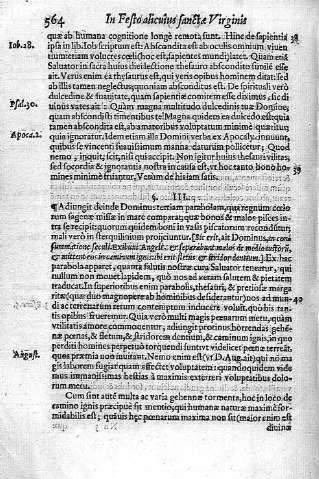 564 In Festo alicuius sanctæ Virginis
quæ ab humana cognitione longè remota sunt. Hinc de sapientia 38
Iob. 28. ipsa in lib. Iob scriptum est: Abscondita est ab oculis omnium viuen
tium: etiam volucres cœli
Saluator in sacra huius dilectione thesauro abscondito similē esse
ait. Verus enim ea thesaurus est, qui veris opibus hominem ditat: sed
ab illis tamen neglectus, quoniam absconditus est. De spirituali verò
dulcedine & suauitate, quam sapientiæ comitem esse diximus, sic di
Psal. 30. uinus vates ait: Quàm magna multitudo dulcedinis tuæ Domine,
quam abscondisti timentibus te! Magna quidem ea dulcedo est: quia
tamen abscondita est, ab amatoribus voluptatum minimè quantum
Apoca. 2. quia ignoratur. Idem etiam illa Domini verba ex Apocaly. innuunt,
quibus se vincenti suauissimum manna daturum pollicetur; Quod
nemo, inquit, scit, nisi qui accipit. Non igitur huius thesauri vilitas,
sed socordia & ignorantia nostra in causa est, vt hoc tanto bono ho- 39
mines minimè fruantur. Verùm de his iam satis.
§. III.
¶ Adiungit deinde Dominus tertiam parabolam, qua regnum cœlo
rum sagenæ missæ in mare comparat, quæ bonos & malos pisces in
tra se recipit: quorum quidem boni in vasis piscatorum reconduntur,
mali verò in ipsum mare proijciuntur. Sic erit, ait Dominus, in con
summatione seculi. Exibunt Angeli & separabunt malos de medio iustorū,
& mittent eos in caminum ignis: ibi erit fletus & stridor dentium. Ex hac
parabola apparet, quanta salutis nostræ cura Saluator teneatur, qui
nullum non mouet lapidem, quò nos ad veram salutem & pietatem
traducat. In superioribus enim parabolis, thesauri, & pretiosæ marga
ritæ (quæ duo magnopere ab hominibus desiderantur) nos ad mun- 40
di ac terrenarum rerum contemptum inducere voluit, quò his tan-
tis opibus frueremur. Quia verò multi magis pœnarum metu, quàm
vtilitatis amore commouentur, adiungit protinus horrendas gehē-
næ pœnas, & fletum, & stridorem dentium, & caminum ignis, in quo
perditi homines perpetuò torquendi sunt: vt videlicet pœnæ terreāt,
August. ques præmia non inuitant. Nemo enim est (vt D. Aug. ait) qui nō ma
gis laborem fugiat quàm affectet voluptatem: quandoquidem vide
mus immanissimas bestias à maximis exterreri voluptatibus dolo-
rum metu.
Cum sint autē multa ac varia gehennæ tormenta, hoc in loco de
camino ignis præcipuè fit mentio, qui humanæ naturæ maximè for-
midabilis est; quāuis hæc pœnarum maxima non sit (maior enim est
diuinæ